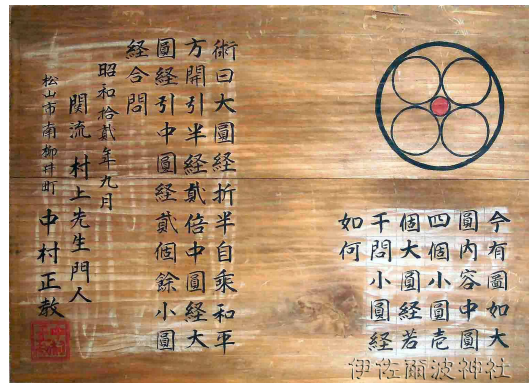 今有圓如大
圓内容中圓
四個小圓壱
個大圓経若
干問小圓経
如何
術曰大圓経折半自乗和平
方開引半経貳倍中圓経大
圓経引中圓経貳個餘小圓
経合問
昭和拾貳年九月
関流 村上先生門人
松山市南柳井町 中村正教
伊佐爾波神社